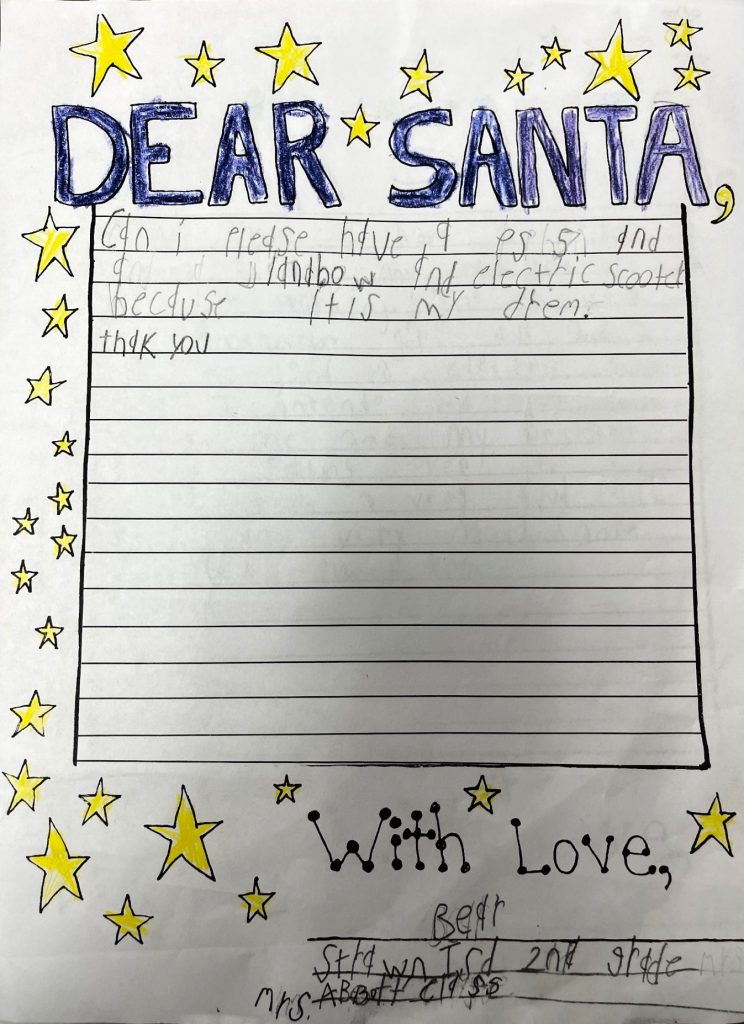 DEAR SANTA,
Can i please have a ps5 and
a landbow and electric scooter
becduse it is my drem.
thak you
With Love,
Bear
Strawn Isd 2nd grade
mrs. ABBott class